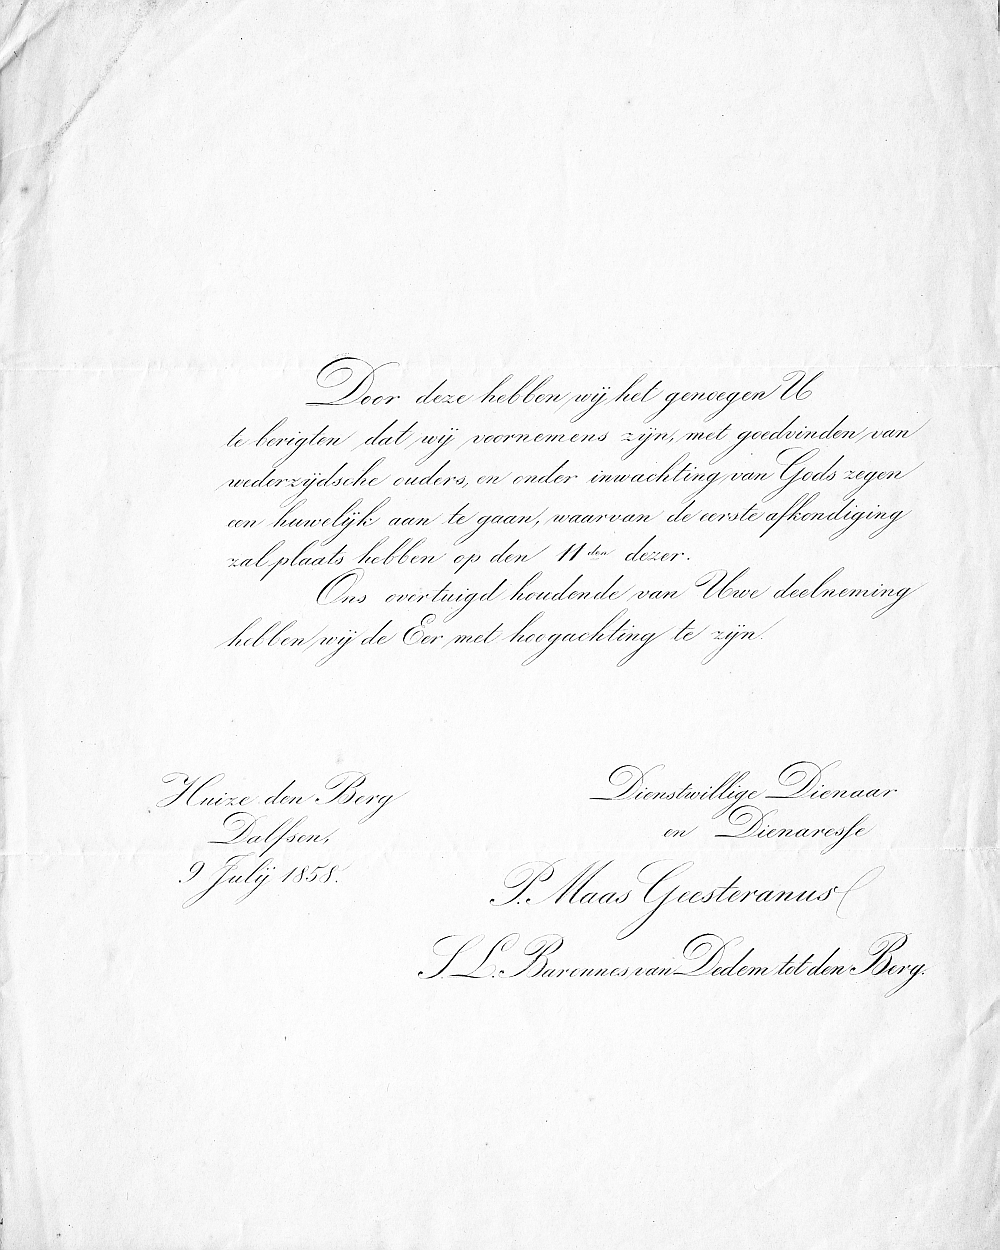 Door deze hebben wij het genoegen U
te berigten dat wij voornemens zijn, met goedvinden van
wederzijdsche ouders, en onder inwachting van Gods zegen
een huwelijk aan te gaan, waarvan de eerste afkondiging
zal plaats hebben op den 11den dezer.
Ons overtuigd houdende van Uwe deelneming
hebben wij de Eer met hoogachting te zijn.
Huize den Berg
Dalfsen,
9 Julij 1858.
Dienstwillige Dienaar
en Dienaresse
P. Maas Geesteranus
S L. Baronnes van Dedem tot den Berg.